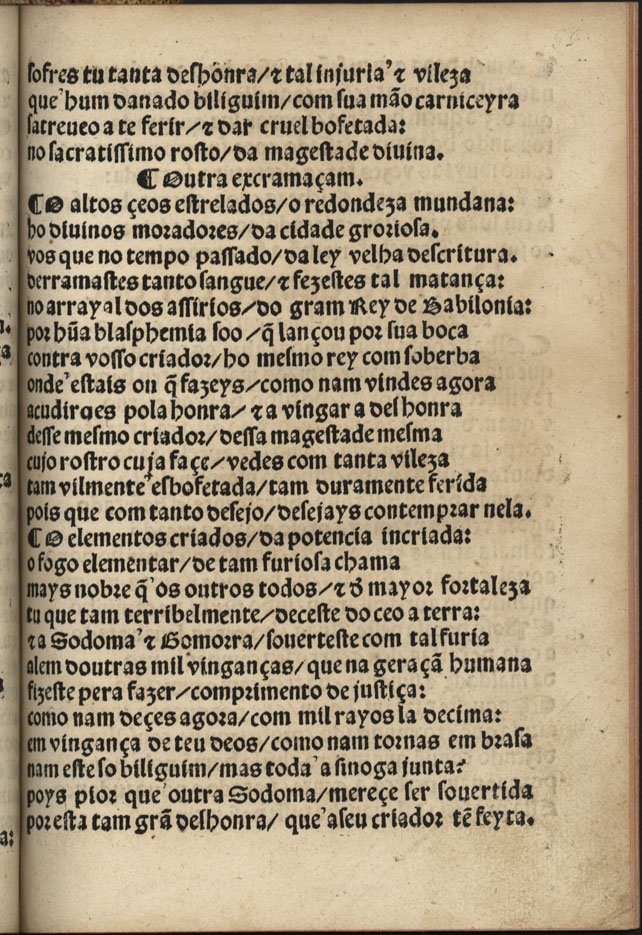 sofres tu tanta deshonra/⁊ tal injuria’⁊ vileza
que’hum danado biliguim/com sua mão carniceyra
satreueo a te ferir/⁊ dar cruel bofetada:
no sacratissimo rosto/da magestade diuina.
¶ Outra excramaçam.
¶ O altos çeos estrelados/o redondeza mundana:
ho diuinos moradores/da cidade groriosa.
vos que no tempo passado/da ley velha descritura.
derramastes tanto sangue/⁊ fezestes tal matança:
no arrayal dos assirios/do gram Rey de Babilonia:
por hũa blasphemia soo/q̃ lançou por sua boca
contra vosso criador/ho mesmo rey com soberba
onde’estais ou q̃ fazeys/como nam vindes agora
acudirdes pola honra/⁊ a vingar a deshonra
desse mesmo criador/dessa magestade mesma
cujo rostro cuja façe/vedes com tanta vileza
tam vilmente’esbofetada/tam duramente ferida
pois que com tanto desejo/desejays contemprar nela.
¶ O elementos criados/da potencia incriada:
o fogo elementar/de tam furiosa chama
mays nobre q̃’os outros todos/⁊ d̃ mayor fortaleza
tu que tam terribelmente/deceste do ceo a terra:
⁊ a Sodoma’⁊ Gomorra/souerteste com tal furia
alem doutras mil vinganças/que na geraçã humana
fizeste pera fazer/comprimento de justiça:
como nam deçes agora/com mil rayos la decima:
em vingança de teu deos/como nam tornas em brasa
nam este so biliguim/mas toda’a sinoga junta?
poys pior que’outra Sodoma/mereçe ser souertida
por esta tam grã deshonra/ que’a seu criador tẽ feyta.